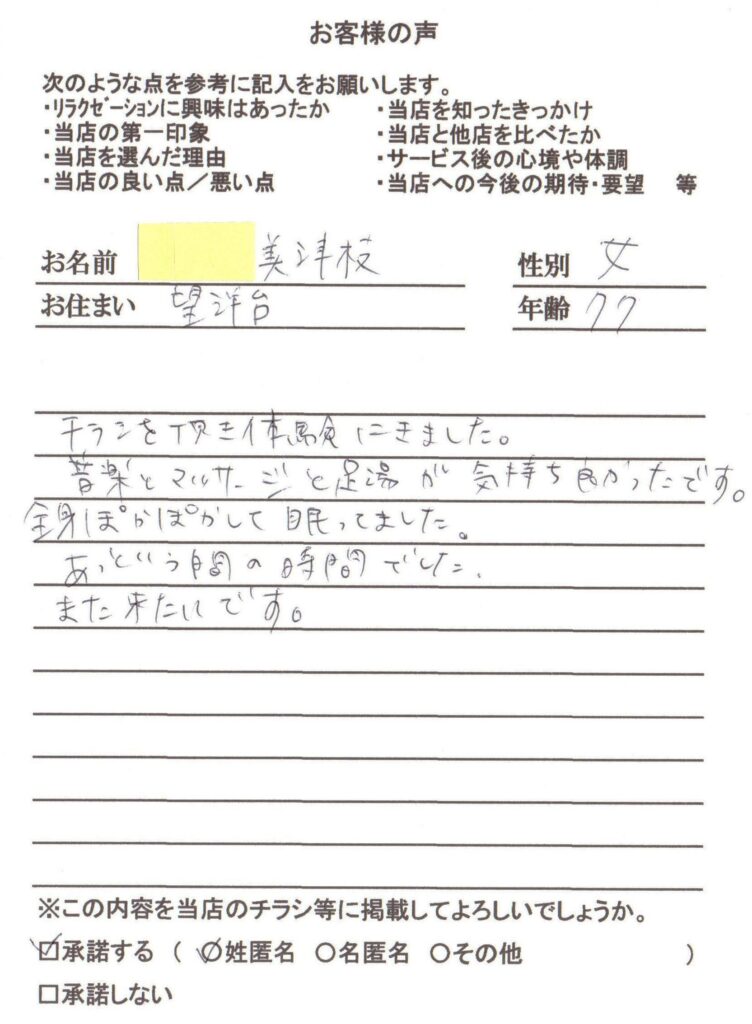 お客様の声
次のような点を参考に記入をお願いします。
・リラクゼーションに興味はあったか ・当店を知ったきっかけ
・当店の第一印象 ・当店と他店を比べたか
・当店を選んだ理由 ・サービス後の心境や体調
・当店の良い点／悪い点 ・当店への今後の期待・要望 等
お名前 美津枝 性別 女
お住まい 望洋台 年齢 77
チラシを頂き体験にきました。
音楽とマッサージと足湯が気持ち良かったです。
全身ぽかぽかして眠ってました。
あっという間の時間でした。
また来たいです。
※この内容を当店のチラシ等に掲載してよろしいでしょうか。
☑承諾する ( ○姓匿名 ○名匿名 ○その他 )
□承諾しない